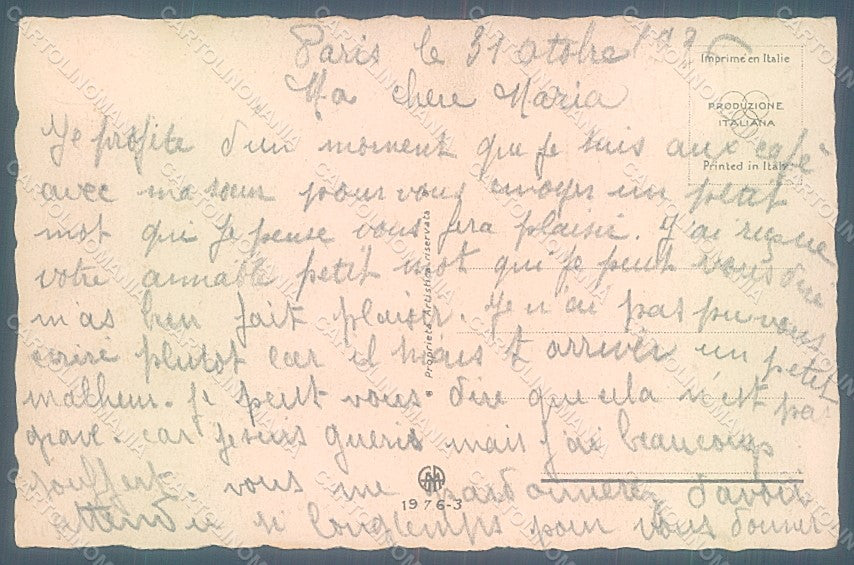 Paris le 31 Otobre 193
Ma chere Maria
Je profite d'un moment que je suis aux café
avec ma soeur pour vous envoyer un petit
mot qui je pense vous fera plaisir. J'ai reçue
votre aimable petit mot qui je peut vous dire
m'as bien fait plaisir. Je n'ai pas pu vous
ecrire plutot car il m'ais t arriver un petit
malheur. je peut vous dire que cela n'est pas
grave. car je suis gueris mais j'ai beaucoup
souffert. vous me pardonnerez d'avoir
attendu si longtemps pour vous donner
Imprimé en Italie
PRODUZIONE
ITALIANA
Printed in Italy
Proprietà Artistica riservata
1976-3
CARTOLINOMANIA